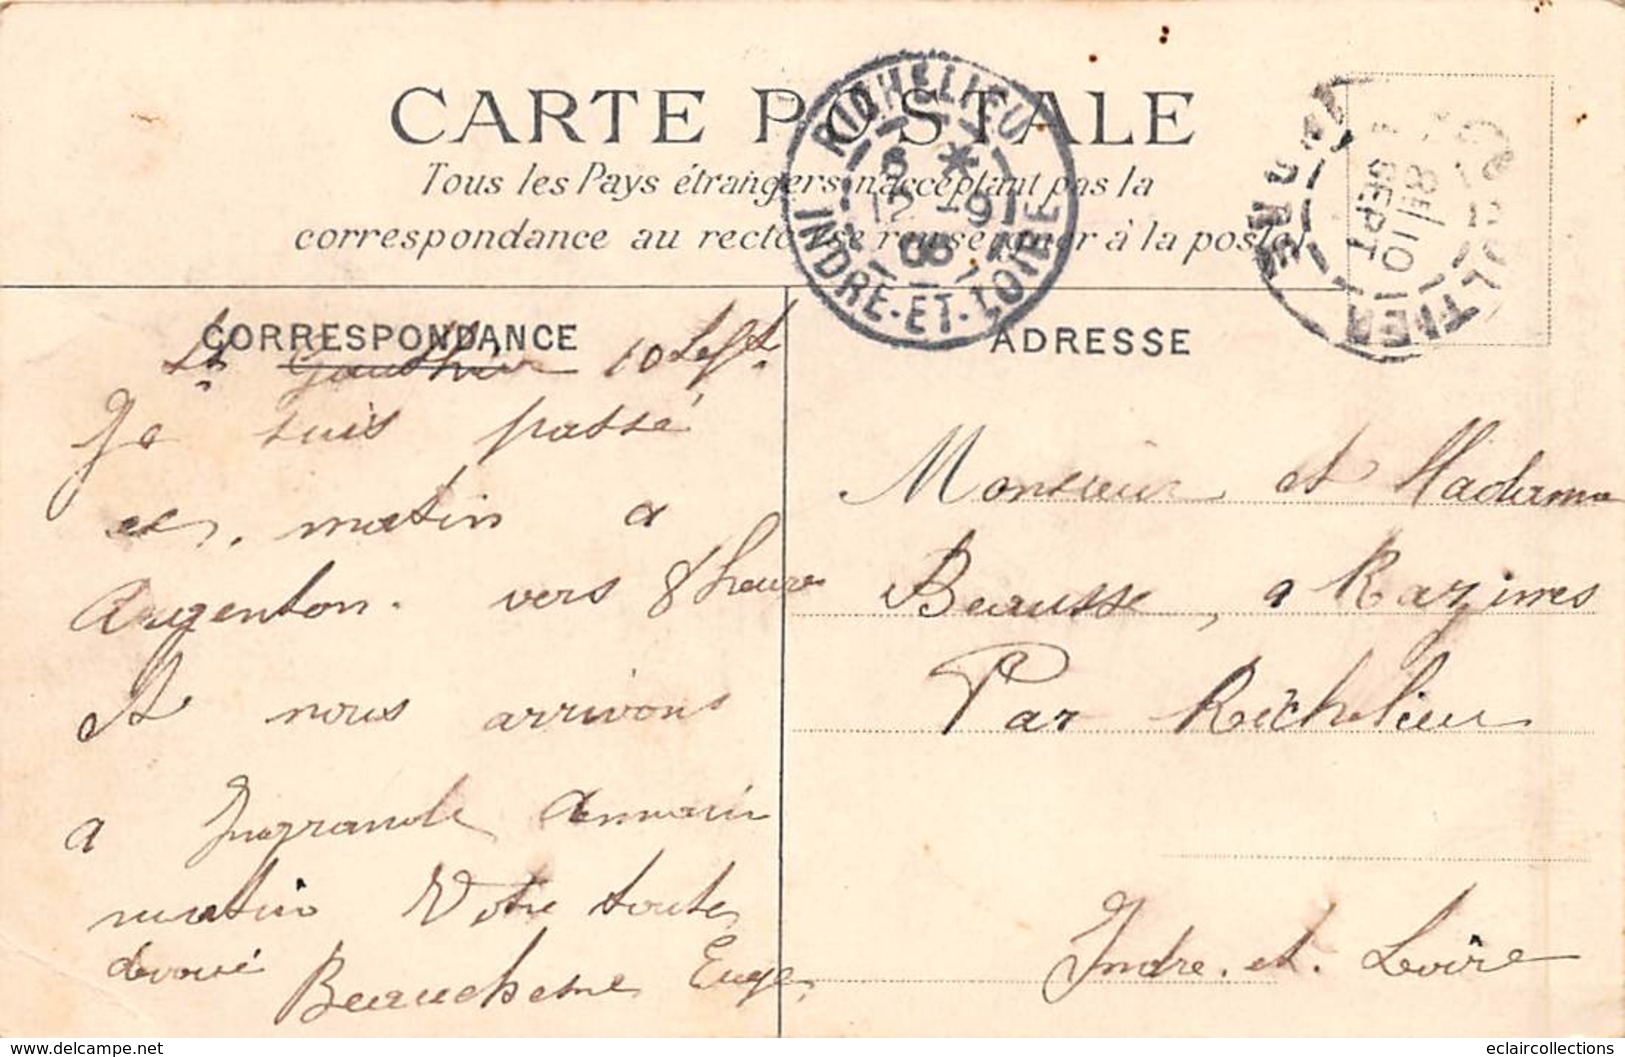 CARTE POSTALE
Tous les Pays étrangers n'acceptant pas la
correspondance au recto, se renseigner à la poste
RICHELIEU
8 *
12 -9
05
INDRE-ET-LOIRE
8E/10
SEPT
INDRE
CORRESPONDANCE
ADRESSE
St Gaultier 10 Sept
Je suis passé
ce, matin a
Argenton. vers 8 heures
et nous arrivons
a Ingrande demain
matin Votre toute
devoué
Beauchesne Euge
Monsieur et Madame
Beausse, a Razines
Par Richelieu
Indre. et. Loire
delcampe.net
eclaircollections